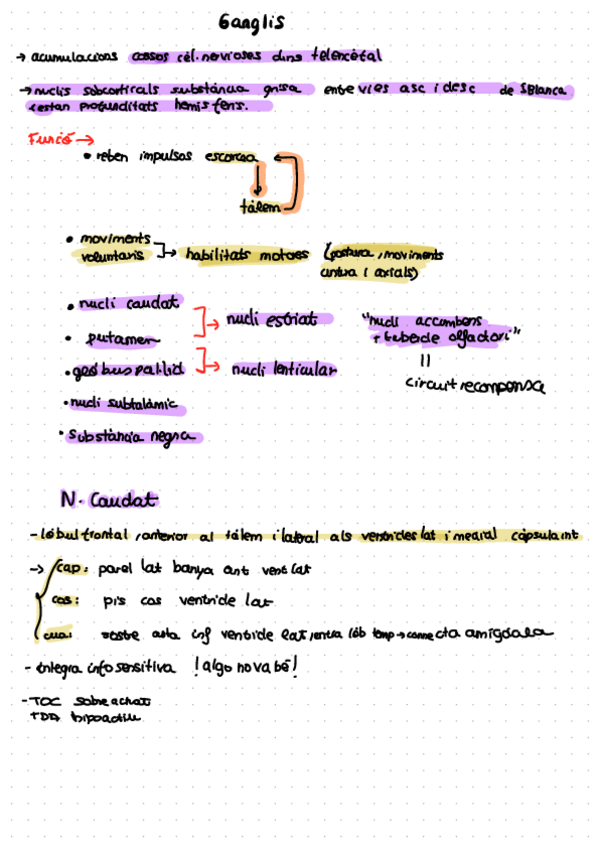 Ganglis
→ acumulacions cossos cèl. nervioses dins telencèfal
→ nuclis subcorticals substància grisa entre vies asc i desc de S Blanca
estan profunditats hemisferis.
Funció →
• reben impulsos escorça
tàlem
• moviments voluntaris → habilitats motores (postura, moviments
cintura i axials)
• nucli caudat
• putamen
→ nucli estriat
• globus pal·lid
→ nucli lenticular
• nucli subtalàmic
• Substància negra
"nucli accumbens
+ tubercle olfactori"
=
circuit recompensa
N. Caudat
- lòbul frontal, anterior al tàlem i lateral als ventricles lat i medial càpsula int
→ cap: paret lat banya ant vent lat
cos: pis cos ventricle lat
cua: sostre asta inf ventricle lat, entra lòb temp → connecta amígdala
- integra info sensitiva ! algo no va bé !
- TOC sobreactiu
TDA hipoactiu